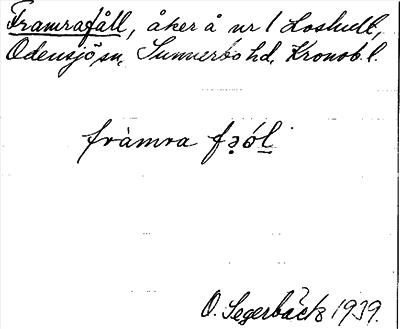 Framrafåll, åker å nr 1 Loshult,
Odensjö sn, Sunnerbo hd, Kronob. l.
fràmra fəól
O. Segerbäck 1939.